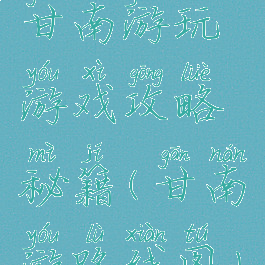 甘南游玩
yóu xì gōng lüè
游戏攻略
mì jí gān nán
秘籍(甘南
yóu lù xiàn tú
游路线图)